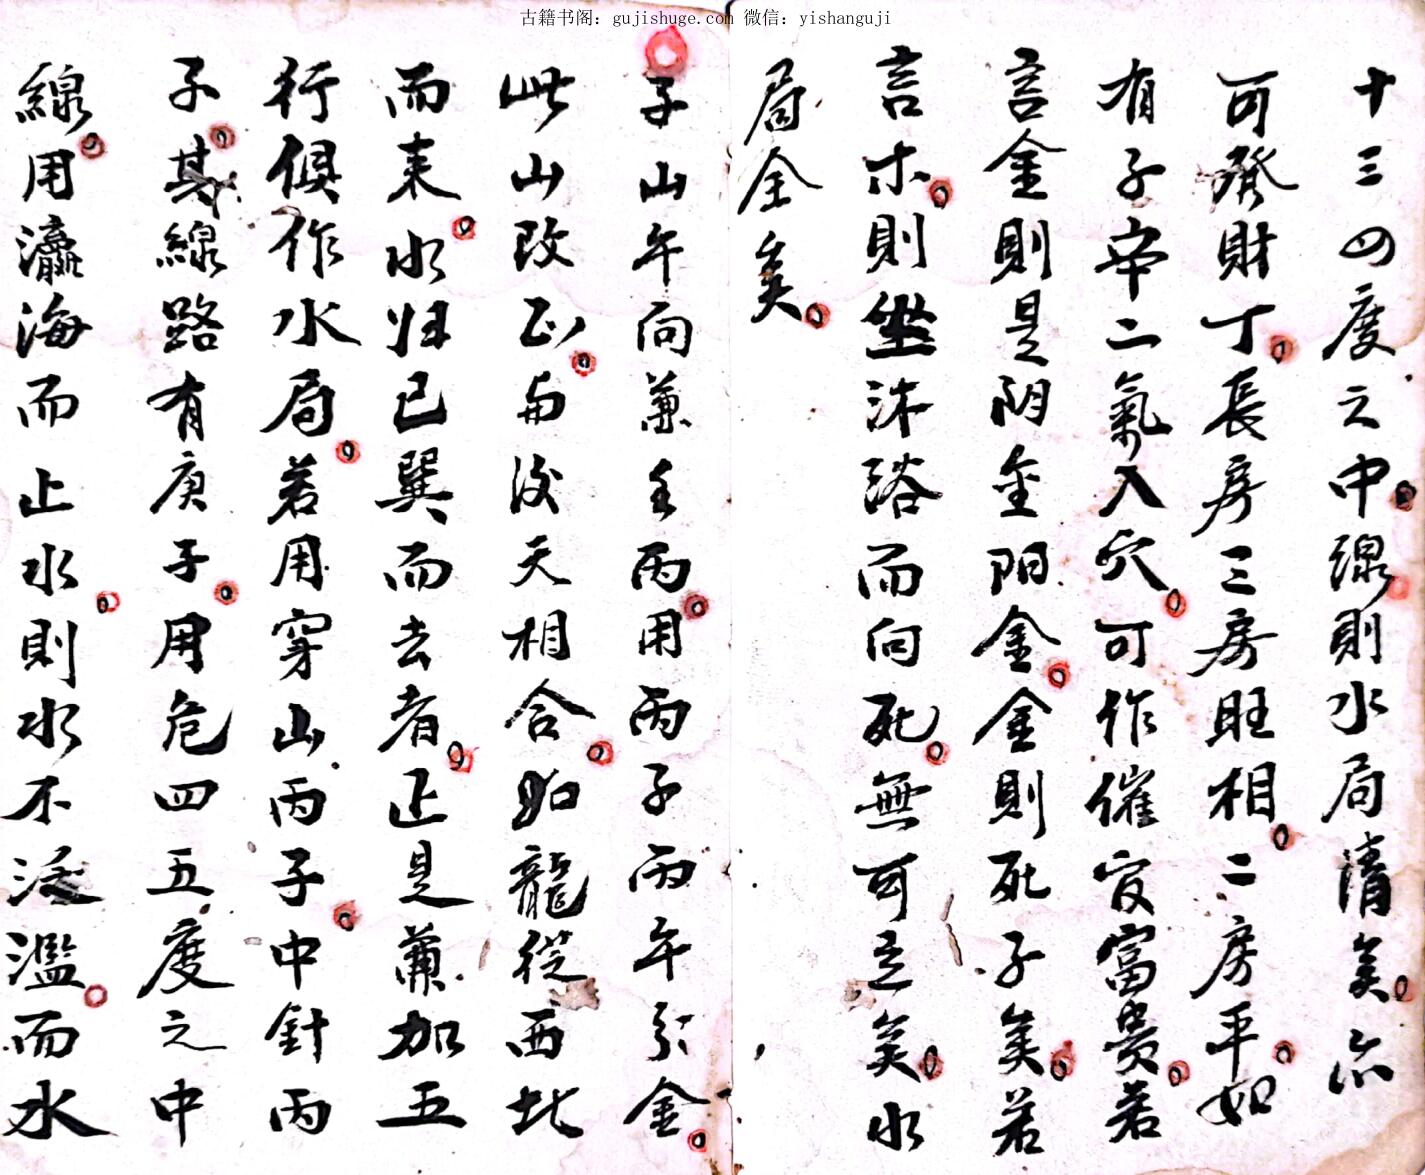 古籍书阁：gujishuge.com 微信：yishanguji
十三四度之中線則水局清矣亦
可發財丁長房三房旺相二房平如
有子帝二氣入穴可作催官富貴若
言金則是阴金阳金金則死子矣若
言木則坐沐浴而向死無可言矣水
局全矣
子山午向兼壬丙用丙子丙午分金
此山改正与後天相合如龍從西北
而来水归巳巽而去者正是兼加五
行俱作水局若用穿山丙子中針丙
子其線路有庚子用危四五度之中
線用瀛海而止水則水不泛濫而水